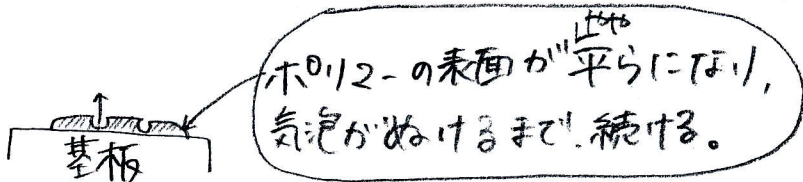 ポリマーの表面が平らになり,
気泡がぬけるまで、続ける。
基板